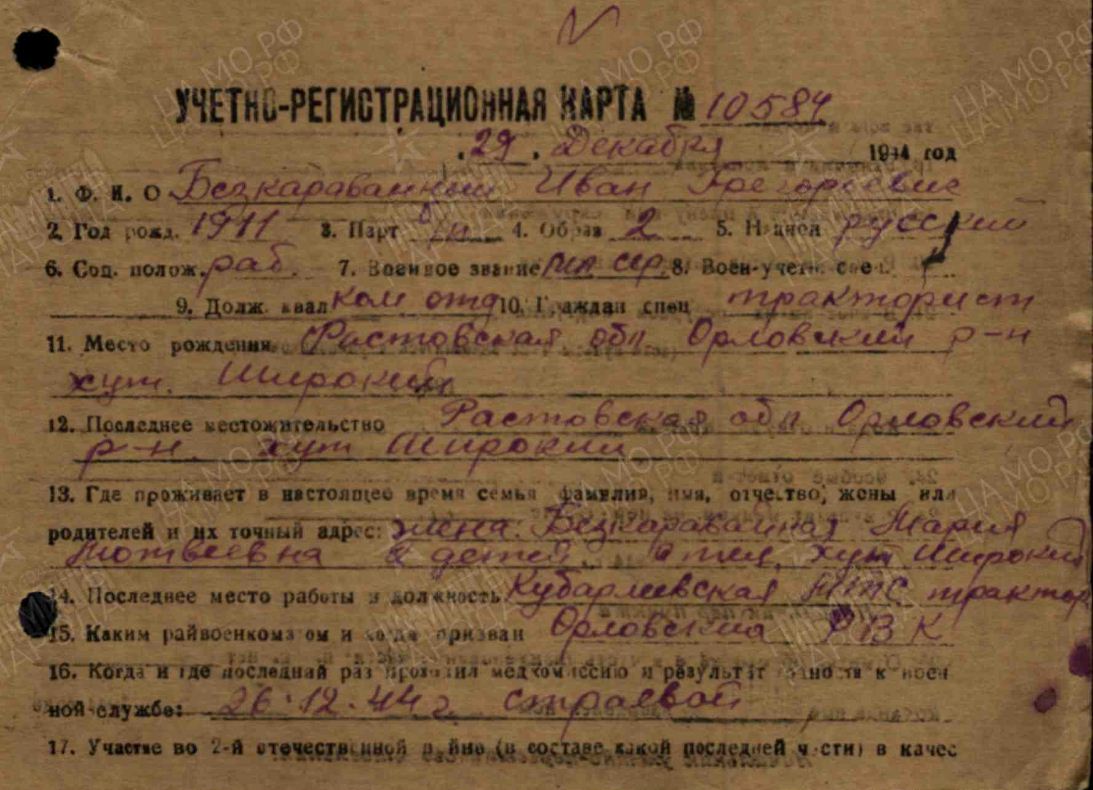 УЧЕТНО-РЕГИСТРАЦИОННАЯ КАРТА № 10584
"29" Декабря 1944 год
1. Ф. И. О Безкараваиный Иван Грегорьевич
2. Год рожд. 1911 3. Парт б/п 4. Образ 2 5. Национ русский
6. Соц. полож. раб. 7. Военное звание мл сер 8. Воен-учетн. спец.
9. Долж. квал ком отд 10. Граждан спец тракторист
11. Место рождения Растовская обл Орловский р-н
хут. Широкий
12. Последнее местожительство Растовская обл Орловский
р-н. хут Широкий
13. Где проживает в настоящее время семья фамилия, имя, отчество, жены или
родителей и их точный адрес: жена: Безкараваиная Мария
Мотвеевна детей, хут Широкий
14. Последнее место работы и должность Кубарлевская МТС трактор
15. Каким райвоенкоматом и когда призван Орловский РВК
16. Когда и где последний раз проходил медкомиссию и результат годности к воен
ной службе: 26.12.44 г. строевой
17. Участие во 2-й отечественной войне (в составе какой последней части) в качес